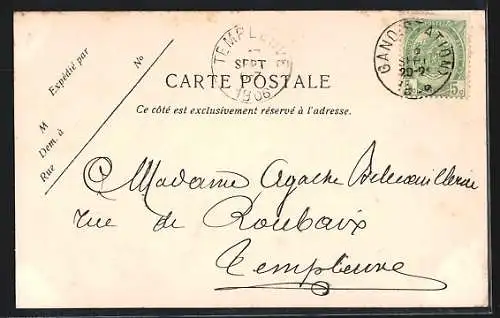 Expédié par
M
Dem. à
Rue
No
TEMPLEUVE
SEPT
1906
CARTE POSTALE
Ce côté est exclusivement réservé à l'adresse.
GAND (STATION)
SEPT
5c
A Madame Agache
rue de Roubaix
Templeuve